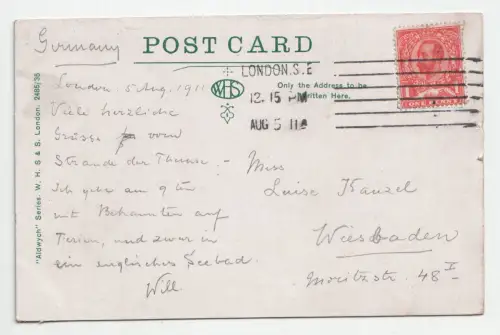 Germany
POST CARD
LONDON.S.E
12.15 PM
AUG 5 11
WHS
Only the Address to be
Written Here.
ONE PENNY
"Aldwych" Series. W. H. S & S. London. 2485/35
London 5 Aug. 1911
Viele herzliche
Grüsse vom
Strande der Themse. -
Ich gehe am 9ten
mit Bekannten auf
Ferien, und zwar in
ein englisches Seebad.
Will
Miss
Luise Kanzel
Wiesbaden
Moritzstr. 48 I